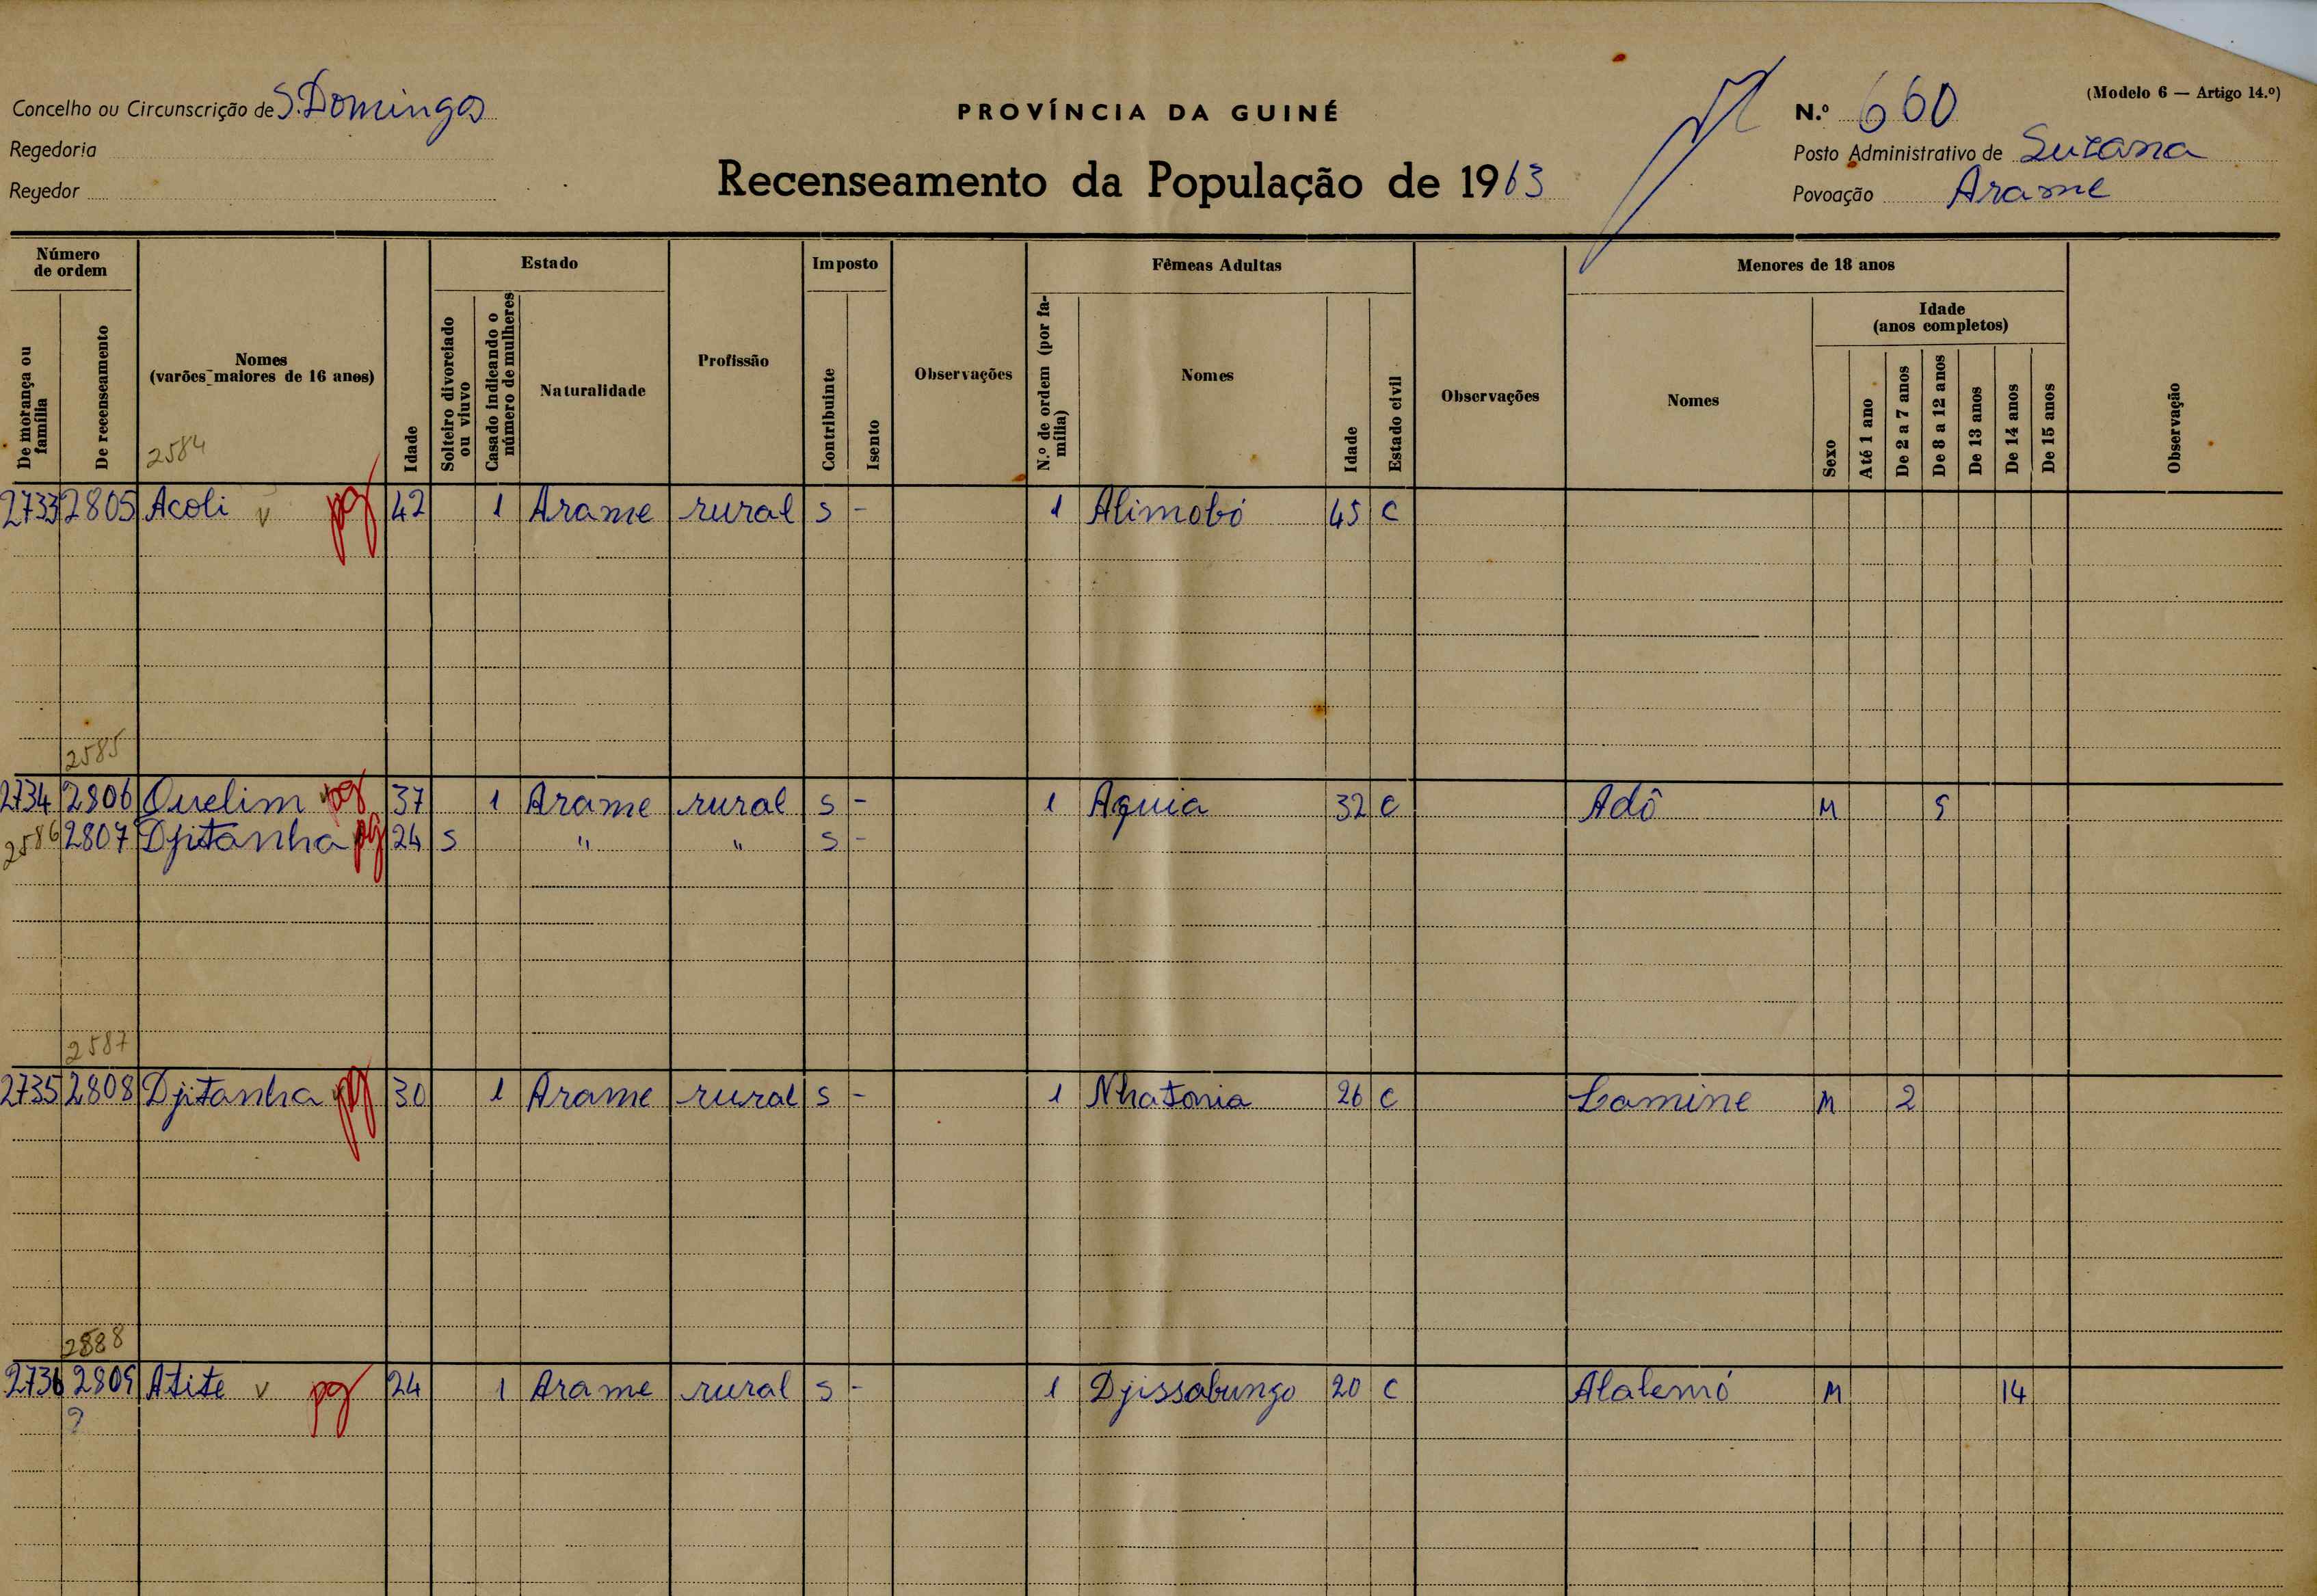 (Modelo 6 — Artigo 14.º)
Concelho ou Circunscrição de S. Domingos
PROVÍNCIA DA GUINÉ
N.º 660
Regedoria
Posto Administrativo de Suzana
Regedor
Recenseamento da População de 1963
Povoação Arame
Número de ordem
Estado
Imposto
Fêmeas Adultas
Menores de 18 anos
De morança ou família
De recenseamento
Nomes
(varões maiores de 16 anos)
2584
Idade
Solteiro divorciado ou viuvo
Casado indicando o número de mulheres
Naturalidade
Profissão
Contribuinte
Isento
Observações
N.º de ordem (por família)
Nomes
Idade
Estado civil
Observações
Nomes
Idade
(anos completos)
Sexo
Até 1 ano
De 2 a 7 anos
De 8 a 12 anos
De 13 anos
De 14 anos
De 15 anos
Observação
2733 2805 Acoli v pg 42 1 Arame rural s - 1 Alimobó 45 C
2585
2734 2806 Quelim v pg 37 1 Arame rural s - 1 Aquia 32 C Adô M 9
2586 2807 Djitanha pg 24 s " " s -
2587
2735 2808 Djitanha v pg 30 1 Arame rural s - 1 Nhatonia 26 C Lamine M 2
2588
2736 2809 Atite v pg 24 1 Arame rural s - 1 Djissabungo 20 C Alalemó M 14
?